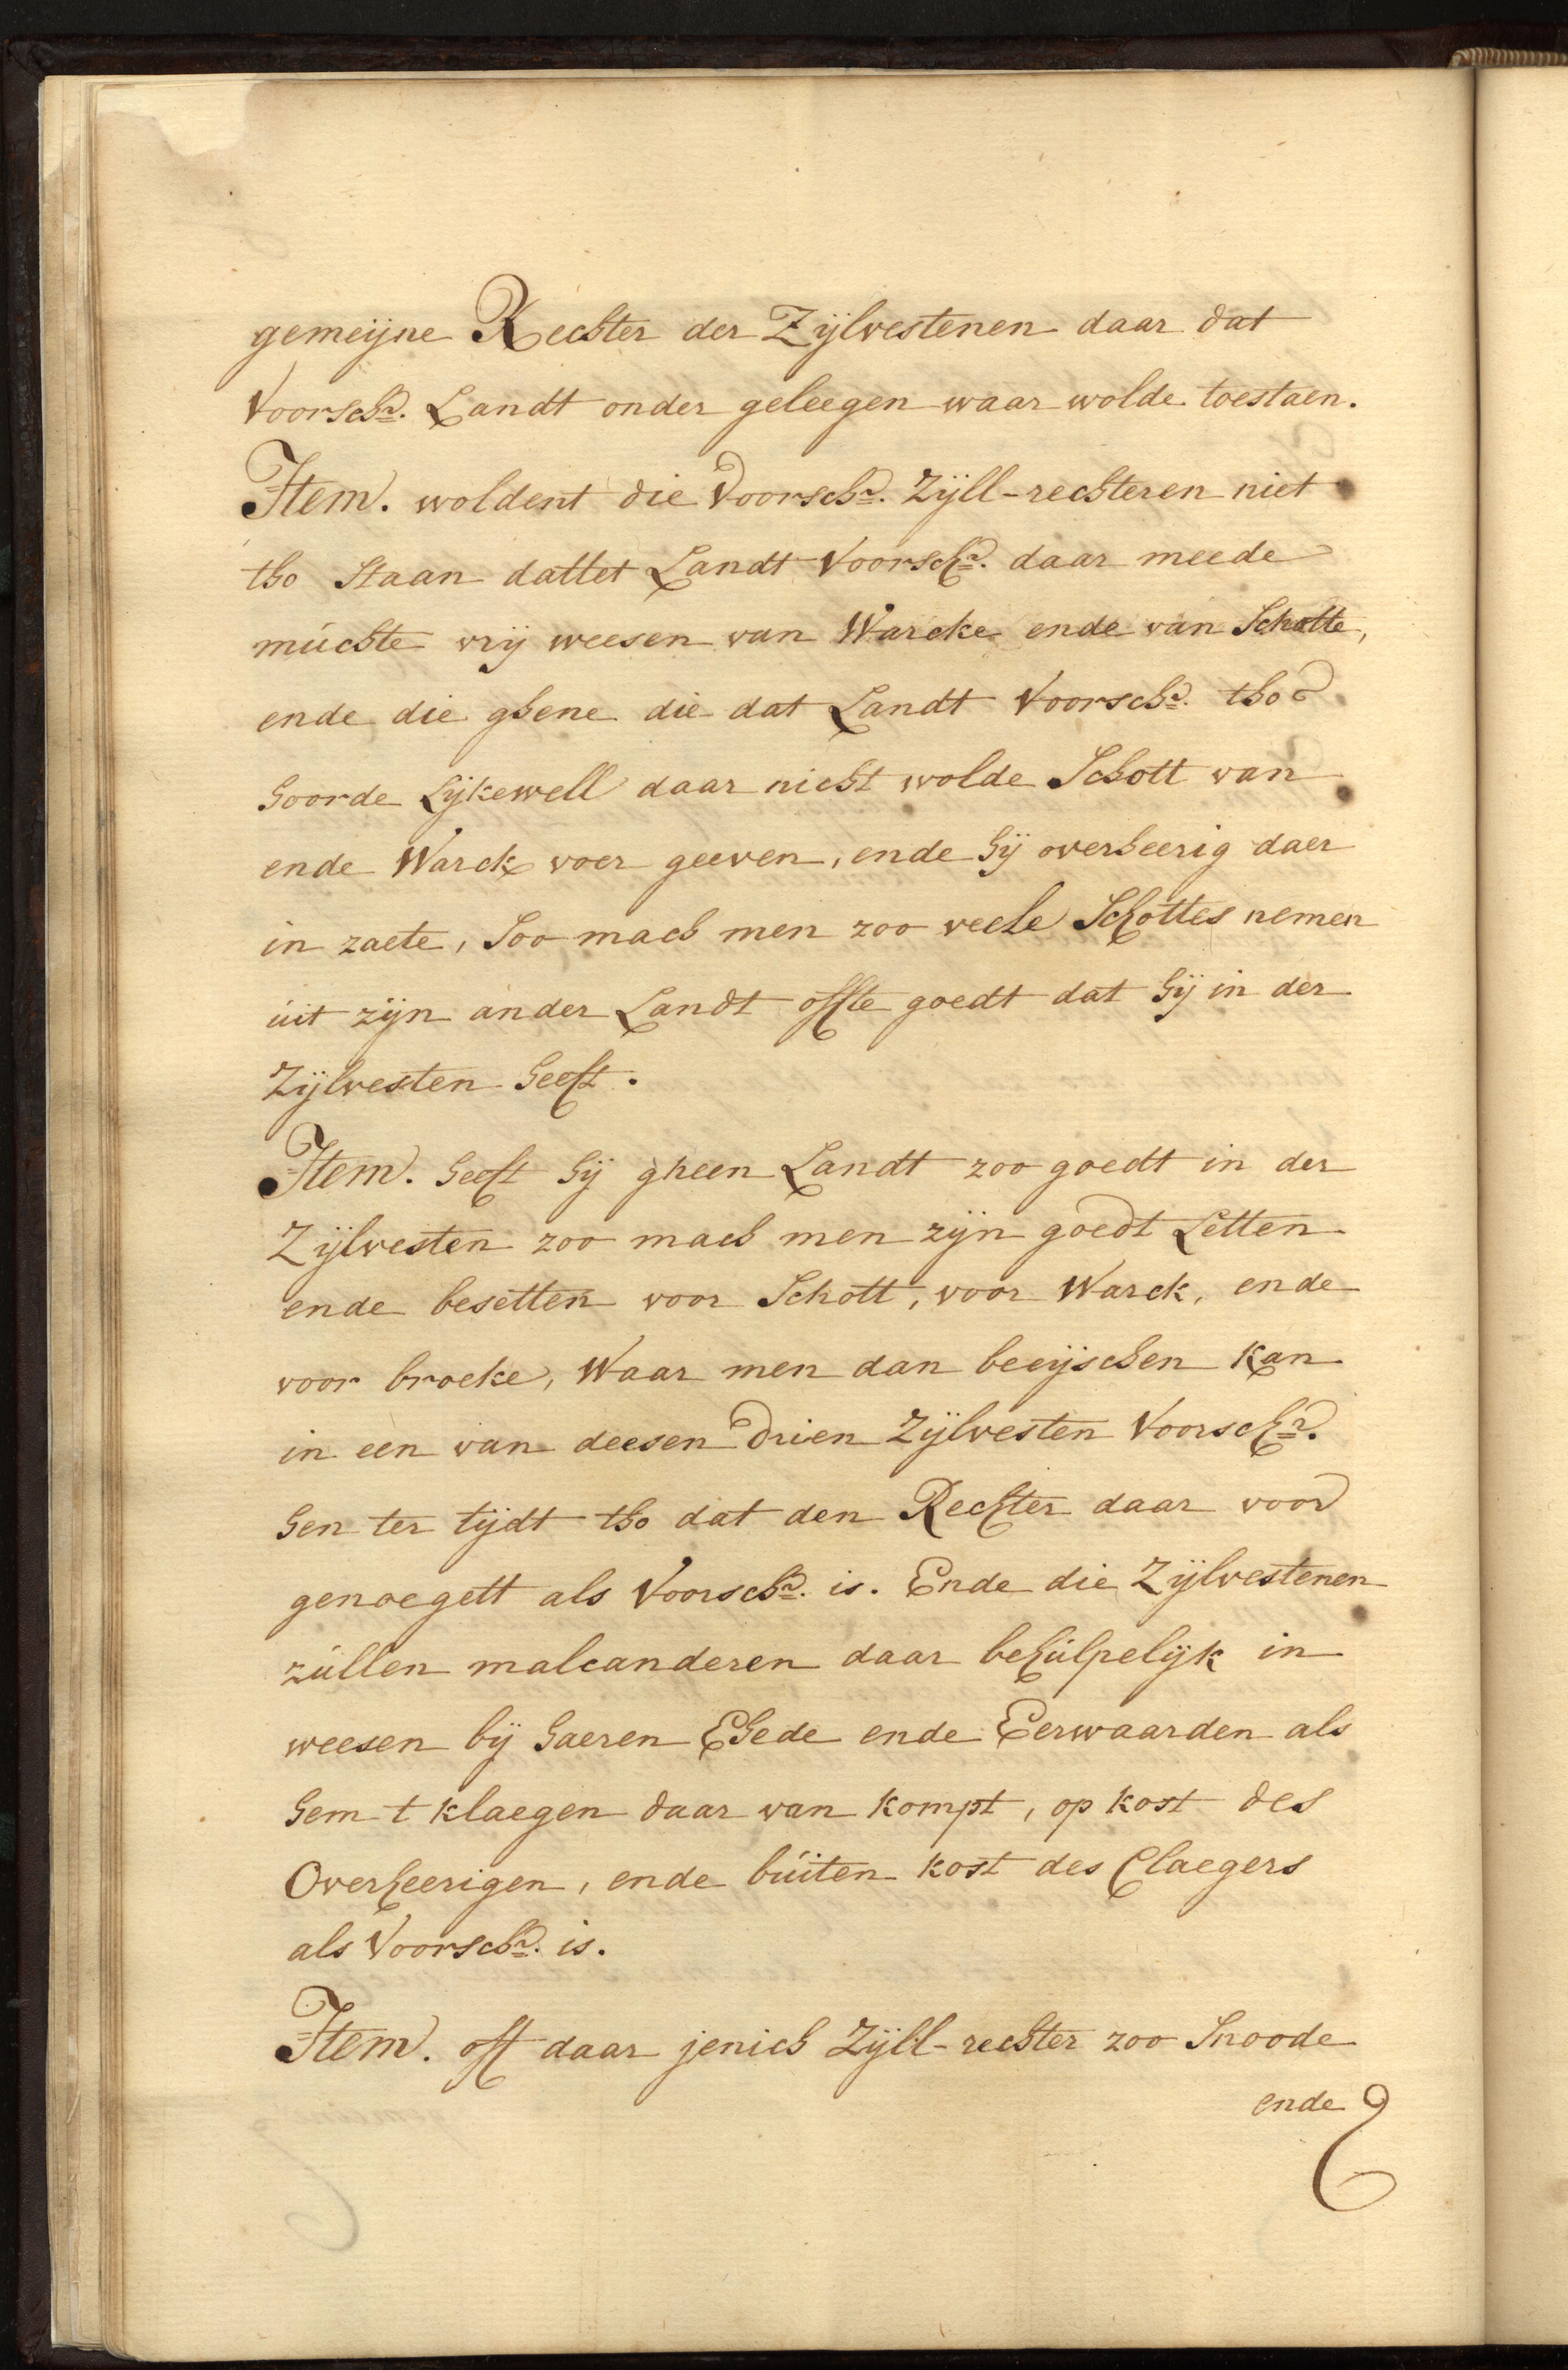 gemeijne Rechter der Zijlvestenen daar dat
Voorschr. Landt onder geleegen waar wolde toestaen.
Item. woldent die Voorschr. Zijll-rechteren niet
tho Staan dattet Landt Voorschr. daar meede
múchte vrij weesen van Warcke ende van Schotte,
ende die ghene die dat Landt Voorschr. tho
hoorde Lijkewell daar nicht wolde Schott van
ende Warck voer geeven, ende hij overheerig daer
in zaete, Soo mach men zoo veele Schottes nemen
úit zijn ander Landt offte goedt dat hij in der
Zijlvesten heeft.
Item. heeft hij gheen Landt zoo goedt in der
Zijlvesten zoo mach men zijn goedt Letten
ende besetten voor Schott, voor Warck, ende
voor broeke, Waar men dan beeijschen kan
in een van deesen drien Zijlvesten Voorschr.
hen ter tijdt tho dat den Rechter daar voor
genoegett als Voorschr. is. Ende die Zijlvestenen
zúllen malcanderen daar behúlpelijk in
weesen bij haeren Ehede ende Eerwaarden als
hem t klaegen daar van kompt, op kost des
Overheerigen, ende búiten kost des Claegers
als Voorschr. is.
Item. oft daar jenich Zijll-rechter zoo Snoode
ende